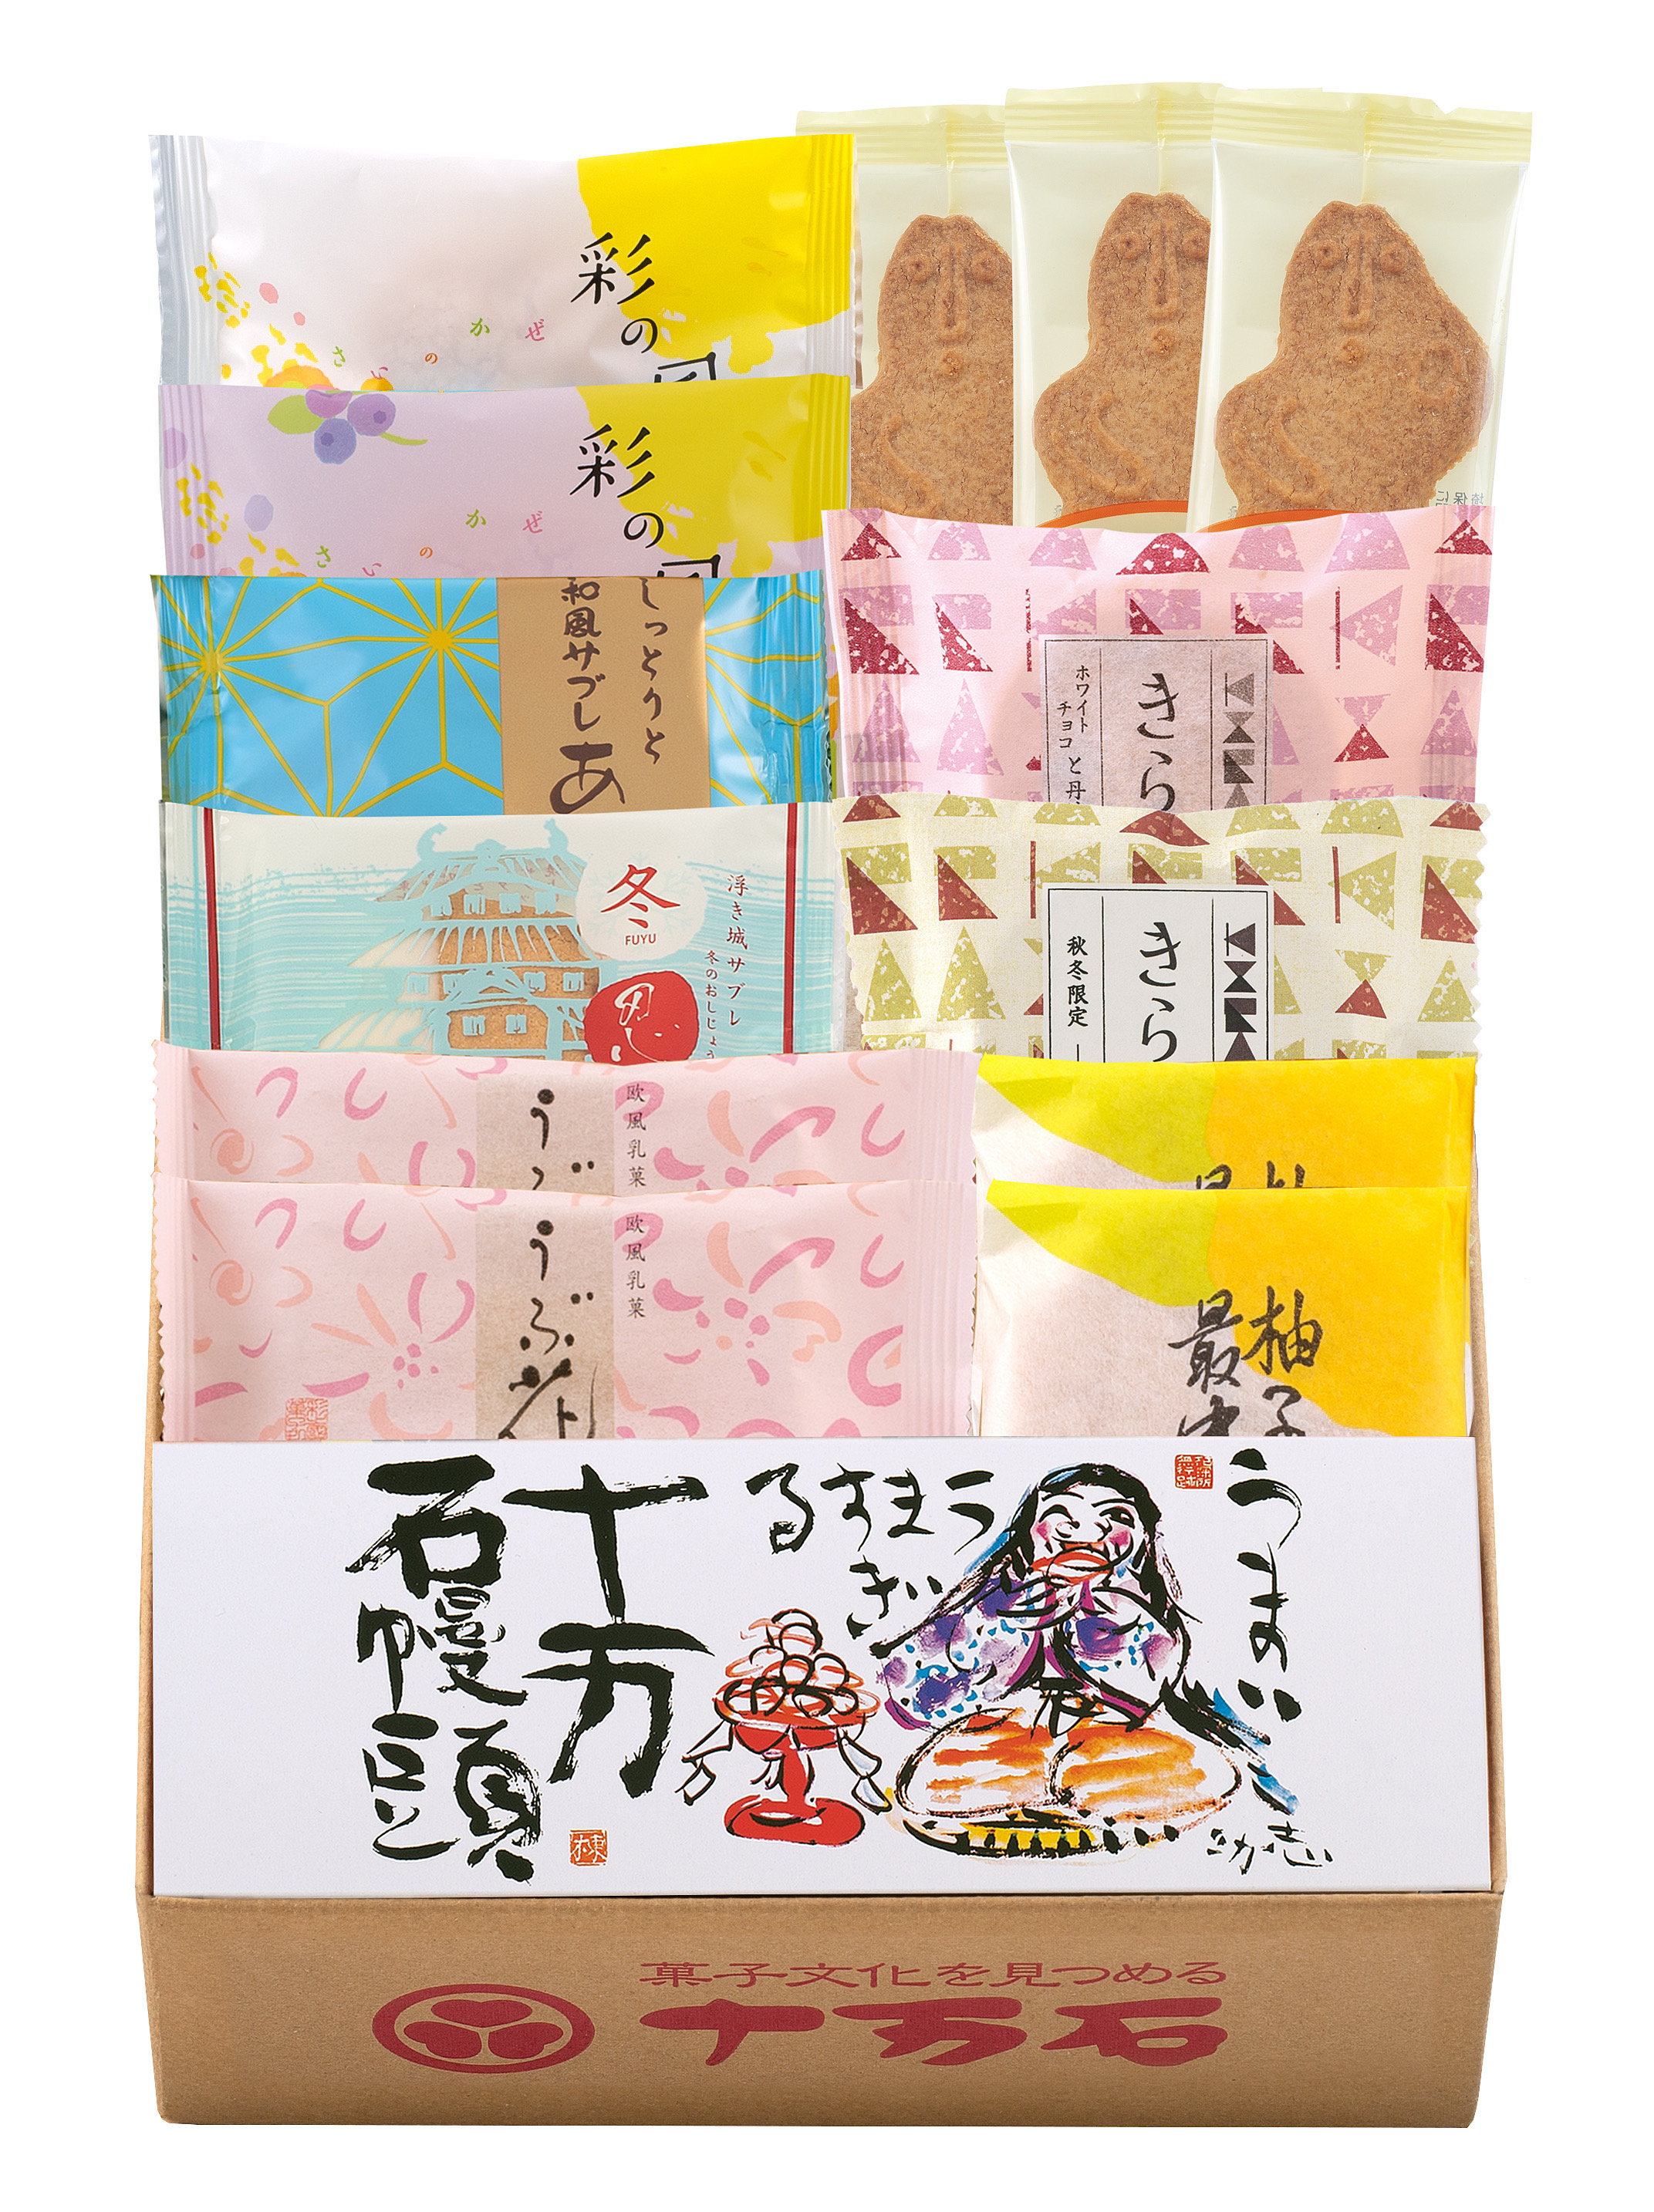 彩の
さいのかぜ
彩の
さいのかぜ
しっとりと
和風サブレ
あ
浮き城サブレ
冬のおしじょう
冬
FUYU
きら
ホワイト
チョコ
と丹
きら
秋冬限定
欧風乳菓
うぶ
欧風乳菓
うぶ花
柚子
最中
うまい
うますぎる
十万
石幔頭
功志
菓子文化を見つめる
十万石